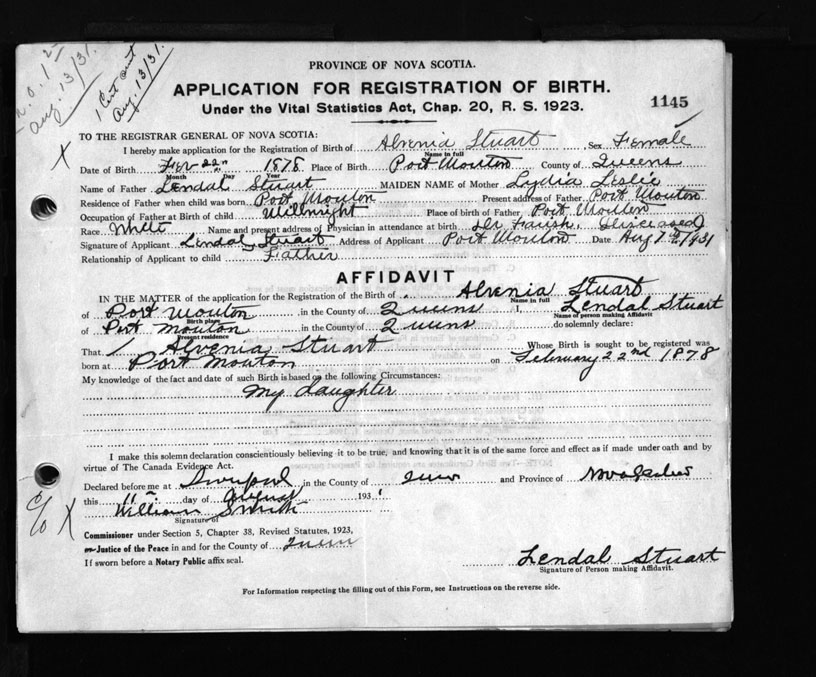 Aug. 13/31.
1 Cert sent
Aug. 13/31.
PROVINCE OF NOVA SCOTIA.
APPLICATION FOR REGISTRATION OF BIRTH.
1145
Under the Vital Statistics Act, Chap. 20, R. S. 1923.
TO THE REGISTRAR GENERAL OF NOVA SCOTIA:
X I hereby make application for the Registration of Birth of Alvenia Stuart Sex Female
Name in full
Date of Birth Feb 22n 1878 Place of Birth Port Mouton County of Queens
Month Day Year
Name of Father Lendal Stuart MAIDEN NAME of Mother Lydia Leslie
Residence of Father when child was born Port Mouton Present address of Father Port Mouton
Occupation of Father at Birth of child Millwright Place of birth of Father Port Mouton
Race White Name and present address of Physician in attendance at birth Dr Farish. Diseased
Signature of Applicant Lendal Stuart Address of Applicant Port Mouton Date Aug 1931
Relationship of Applicant to child Father
AFFIDAVIT
IN THE MATTER of the application for the Registration of the Birth of Alvenia Stuart
Name in full
of Port Mouton in the County of Queens I, Lendal Stuart
Birth place Name of person making Affidavit
of Port Mouton in the County of Queens do solemnly declare:
Present residence
That / Alvenia Stuart Whose Birth is sought to be registered was
born at Port Mouton on February 22nd 1878
My knowledge of the fact and date of such Birth is based on the following Circumstances:
My daughter
I make this solemn declaration conscientiously believing it to be true, and knowing that it is of the same force and effect as if made under oath and by
virtue of The Canada Evidence Act.
Declared before me at Liverpool in the County of Queens and Province of Nova Scotia
this 11th day of August 1931
William Smith
Signature of
Commissioner under Section 5, Chapter 38, Revised Statutes, 1923,
or Justice of the Peace in and for the County of Queens
If sworn before a Notary Public affix seal.
Lendal Stuart
Signature of Person making Affidavit.
c/o X
For Information respecting the filling out of this Form, see Instructions on the reverse side.